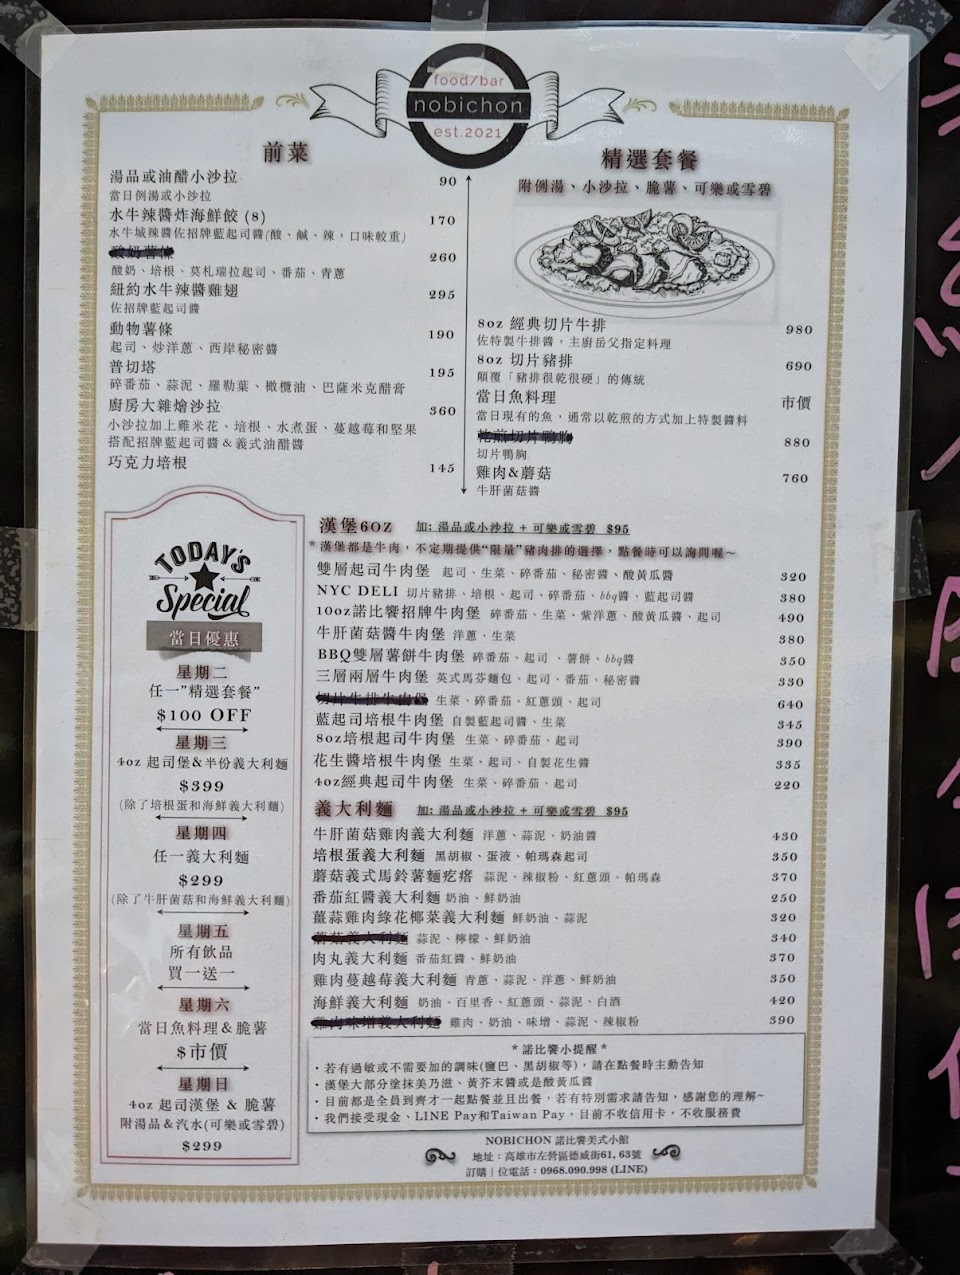 food/bar
nobichon
est.2021
前菜
湯品或油醋小沙拉 90
當日例湯或小沙拉
水牛辣醬炸海鮮餃 (8) 170
水牛城辣醬佐招牌藍起司醬(酸、鹹、辣，口味較重)
酸奶薯條 260
酸奶、培根、莫札瑞拉起司、番茄、青蔥
紐約水牛辣醬雞翅 295
佐招牌藍起司醬
動物薯條 190
起司、炒洋蔥、西岸秘密醬
普切塔 195
碎番茄、蒜泥、羅勒葉、橄欖油、巴薩米克醋膏
廚房大雜燴沙拉 360
小沙拉加上雞米花、培根、水煮蛋、蔓越莓和堅果
搭配招牌藍起司醬&義式油醋醬
巧克力培根 145
精選套餐
附例湯、小沙拉、脆薯、可樂或雪碧
8oz 經典切片牛排 980
佐特製牛排醬，主廚岳父指定料理
8oz 切片豬排 690
顛覆「豬排很乾很硬」的傳統
當日魚料理 市價
當日現有的魚，通常以乾煎的方式加上特製醬料
乾煎切片鴨胸 880
切片鴨胸
雞肉&蘑菇 760
牛肝菌菇醬
TODAY'S
Special
當日優惠
星期二
任一"精選套餐"
$100 OFF
星期三
4oz 起司堡&半份義大利麵
$399
(除了培根蛋和海鮮義大利麵)
星期四
任一義大利麵
$299
(除了牛肝菌菇和海鮮義大利麵)
星期五
所有飲品
買一送一
星期六
當日魚料理&脆薯
$市價
星期日
4oz 起司漢堡 & 脆薯
附湯品&汽水(可樂或雪碧)
$299
漢堡6OZ 加: 湯品或小沙拉 + 可樂或雪碧 $95
*漢堡都是牛肉，不定期提供"限量"豬肉排的選擇，點餐時可以詢問喔~
雙層起司牛肉堡 起司、生菜、碎番茄、秘密醬、酸黃瓜醬 320
NYC DELI 切片豬排、培根、起司、碎番茄、bbq醬、藍起司醬 380
10oz諾比饗招牌牛肉堡 碎番茄、生菜、紫洋蔥、酸黃瓜醬、起司 490
牛肝菌菇醬牛肉堡 洋蔥、生菜 380
BBQ雙層薯餅牛肉堡 碎番茄、起司、薯餅、bbq醬 350
三層兩層牛肉堡 英式馬芬麵包、起司、番茄、秘密醬 330
切片牛排牛肉堡 生菜、碎番茄、紅蔥頭、起司 640
藍起司培根牛肉堡 自製藍起司醬、生菜 345
8oz培根起司牛肉堡 生菜、碎番茄、起司 390
花生醬培根牛肉堡 生菜、起司、自製花生醬 335
4oz經典起司牛肉堡 生菜、碎番茄、起司 220
義大利麵 加: 湯品或小沙拉 + 可樂或雪碧 $95
牛肝菌菇雞肉義大利麵 洋蔥、蒜泥、奶油醬 430
培根蛋義大利麵 黑胡椒、蛋液、帕瑪森起司 350
蘑菇義式馬鈴薯麵疙瘩 蒜泥、辣椒粉、紅蔥頭、帕瑪森 370
番茄紅醬義大利麵 奶油、鮮奶油 250
薑蒜雞肉綠花椰菜義大利麵 鮮奶油、蒜泥 320
蘑菇義大利麵 蒜泥、檸檬、鮮奶油 340
肉丸義大利麵 番茄紅醬、鮮奶油 370
雞肉蔓越莓義大利麵 青蔥、蒜泥、洋蔥、鮮奶油 350
海鮮義大利麵 奶油、百里香、紅蔥頭、蒜泥、白酒 420
雞肉味增義大利麵 雞肉、奶油、味增、蒜泥、辣椒粉 390
*諾比饗小提醒*
・若有過敏或不需要加的調味(鹽巴、黑胡椒等)，請在點餐時主動告知
・漢堡大部分塗抹美乃滋、黃芥末醬或是酸黃瓜醬
・目前都是全員到齊才一起點餐並且出餐，若有特別需求請告知，感謝您的理解~
・我們接受現金、LINE Pay和Taiwan Pay，目前不收信用卡，不收服務費
NOBICHON 諾比饗美式小館
地址：高雄市左營區德威街61, 63號
訂購｜位電話：0968.090.998 (LINE)